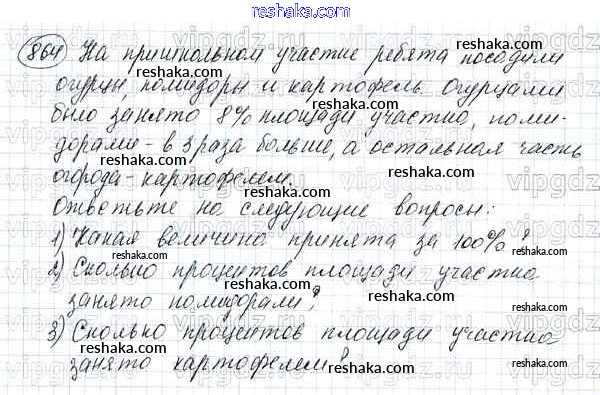 reshaka.com
864 На пришкольном участке ребята посадили
reshaka.com
огурцы, помидоры и картофель. Огурцами
reshaka.com
было занято 8% площади участка, поми-
reshaka.com
дорами - в 3 раза больше, а остальная часть
reshaka.com
огорода - картофелем.
reshaka.com
Ответьте на следующие вопросы:
reshaka.com
1) Какая величина принята за 100%?
reshaka.com
2) Сколько процентов площади участка
reshaka.com
занято помидорами?
reshaka.com
3) Сколько процентов площади участка
reshaka.com
занято картофелем?
reshaka.com